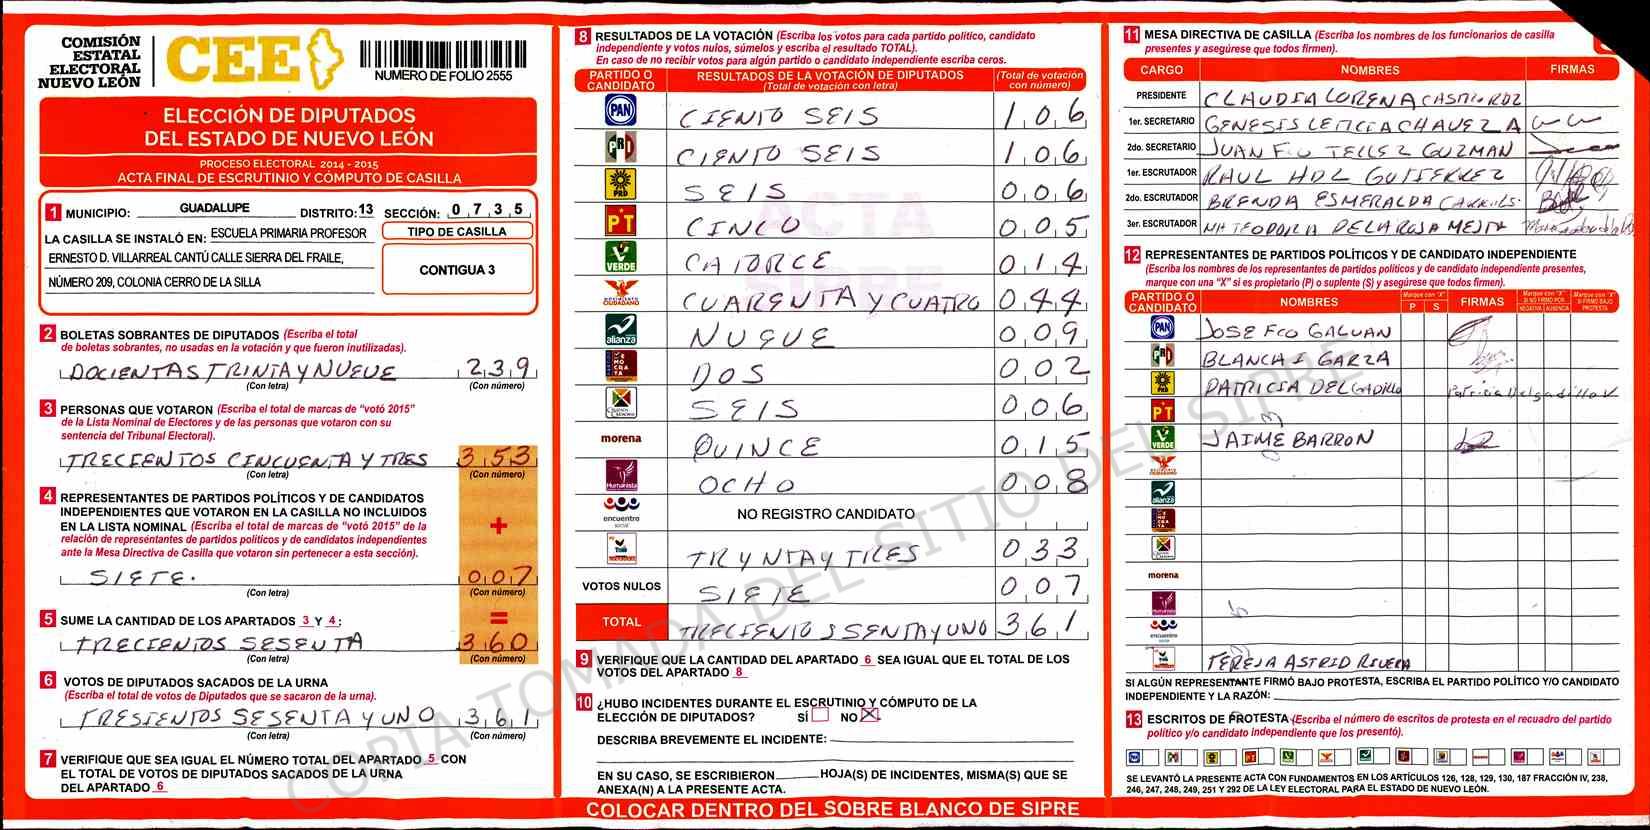 COMISIÓN
ESTATAL
ELECTORAL
NUEVO LEÓN
CEE
NUMERO DE FOLIO 2555
ELECCIÓN DE DIPUTADOS
DEL ESTADO DE NUEVO LEÓN
PROCESO ELECTORAL 2014 - 2015
ACTA FINAL DE ESCRUTINIO Y CÓMPUTO DE CASILLA
1 MUNICIPIO: GUADALUPE DISTRITO: 13 SECCIÓN: 0 7 3 5
LA CASILLA SE INSTALÓ EN: ESCUELA PRIMARIA PROFESOR
ERNESTO D. VILLARREAL CANTÚ CALLE SIERRA DEL FRAILE,
NÚMERO 209, COLONIA CERRO DE LA SILLA
TIPO DE CASILLA
CONTIGUA 3
2 BOLETAS SOBRANTES DE DIPUTADOS (Escriba el total
de boletas sobrantes, no usadas en la votación y que fueron inutilizadas).
DOCIENTAS TRINTA Y NUEVE 2 3 9
(Con letra) (Con número)
3 PERSONAS QUE VOTARON (Escriba el total de marcas de "votó 2015"
de la Lista Nominal de Electores y de las personas que votaron con su
sentencia del Tribunal Electoral).
TRECIENTOS CINCUENTA Y TRES 3 5 3
(Con letra) (Con número)
4 REPRESENTANTES DE PARTIDOS POLÍTICOS Y DE CANDIDATOS
INDEPENDIENTES QUE VOTARON EN LA CASILLA NO INCLUIDOS
EN LA LISTA NOMINAL (Escriba el total de marcas de "votó 2015" de la
relación de representantes de partidos políticos y de candidatos independientes
ante la Mesa Directiva de Casilla que votaron sin pertenecer a esta sección).
+
SIETE. 0 0 7
(Con letra) (Con número)
=
5 SUME LA CANTIDAD DE LOS APARTADOS 3 Y 4:
TRECIENTOS SESENTA 3 6 0
(Con letra) (Con número)
6 VOTOS DE DIPUTADOS SACADOS DE LA URNA
(Escriba el total de votos de Diputados que se sacaron de la urna).
TRESIENTOS SESENTA Y UNO 3 6 1
(Con letra) (Con número)
7 VERIFIQUE QUE SEA IGUAL EL NÚMERO TOTAL DEL APARTADO 5 CON
EL TOTAL DE VOTOS DE DIPUTADOS SACADOS DE LA URNA
DEL APARTADO 6
8 RESULTADOS DE LA VOTACIÓN (Escriba los votos para cada partido político, candidato
independiente y votos nulos, súmelos y escriba el resultado TOTAL).
En caso de no recibir votos para algún partido o candidato independiente escriba ceros.
PARTIDO O CANDIDATO RESULTADOS DE LA VOTACIÓN DE DIPUTADOS (Total de votación con letra) (Total de votación con número)
PAN CIENTO SEIS 1 0 6
PRD CIENTO SEIS 1 0 6
PRD SEIS 0 0 6
PT CINCO 0 0 5
VERDE CATORCE 0 1 4
MOVIMIENTO CIUDADANO CUARENTA Y CUATRO 0 4 4
alianza NUEVE 0 0 9
DEMOCRATA DOS 0 0 2
SEIS 0 0 6
morena QUINCE 0 1 5
Humanista OCHO 0 0 8
encuentro social NO REGISTRO CANDIDATO
TRYNTA Y TRES 0 3 3
VOTOS NULOS SIETE 0 0 7
TOTAL TRECIENTOS SENTA Y UNO 3 6 1
9 VERIFIQUE QUE LA CANTIDAD DEL APARTADO 6 SEA IGUAL QUE EL TOTAL DE LOS
VOTOS DEL APARTADO 8
10 ¿HUBO INCIDENTES DURANTE EL ESCRUTINIO Y CÓMPUTO DE LA
ELECCIÓN DE DIPUTADOS? SÍ NO X
DESCRIBA BREVEMENTE EL INCIDENTE:
EN SU CASO, SE ESCRIBIERON HOJA(S) DE INCIDENTES, MISMA(S) QUE SE
ANEXA(N) A LA PRESENTE ACTA.
COLOCAR DENTRO DEL SOBRE BLANCO DE SIPRE
11 MESA DIRECTIVA DE CASILLA (Escriba los nombres de los funcionarios de casilla
presentes y asegúrese que todos firmen).
CARGO NOMBRES FIRMAS
PRESIDENTE CLAUDIA LORENA CASTILLO RDZ
1er. SECRETARIO GENESIS LETICIA CHAVEZ A
2do. SECRETARIO JUAN FCO TELLEZ GUZMAN
1er. ESCRUTADOR RAUL HDZ GUTIERREZ
2do. ESCRUTADOR BRENDA ESMERALDA
3er. ESCRUTADOR MA TEODORA DE LA ROSA MEJIA
12 REPRESENTANTES DE PARTIDOS POLÍTICOS Y DE CANDIDATO INDEPENDIENTE
(Escriba los nombres de los representantes de partidos políticos y de candidato independiente presentes,
marque con una "X" si es propietario (P) o suplente (S) y asegúrese que todos firmen).
PARTIDO O CANDIDATO NOMBRES Marque con "X" P S FIRMAS Marque con "X" SI NO FIRMÓ POR NEGATIVA AUSENCIA Marque con "X" SI FIRMÓ BAJO PROTESTA
PAN JOSE FCO GALVAN
PRD BLANCA I GARZA
PRD PATRICIA DELGADILLO Patricia Delgadillo V
PT
VERDE JAIME BARRON
alianza
morena
encuentro
TERESA ASTRID RIVERA
SI ALGÚN REPRESENTANTE FIRMÓ BAJO PROTESTA, ESCRIBA EL PARTIDO POLÍTICO Y/O CANDIDATO
INDEPENDIENTE Y LA RAZÓN:
13 ESCRITOS DE PROTESTA (Escriba el número de escritos de protesta en el recuadro del partido
político y/o candidato independiente que los presentó).
SE LEVANTÓ LA PRESENTE ACTA CON FUNDAMENTOS EN LOS ARTÍCULOS 126, 128, 129, 130, 187 FRACCIÓN IV, 238,
246, 247, 248, 249, 251 Y 292 DE LA LEY ELECTORAL PARA EL ESTADO DE NUEVO LEÓN.
ACTA
SIPRE
COPIA TOMADA DEL SITIO DEL SIPRE